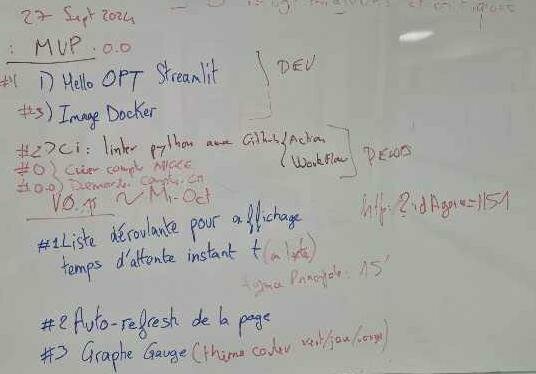 27 Sept 2024
: MVP. 0.0
#1 1) Hello OPT Streamlit
DEV
#3) Image Docker
#2 CI: linter python avec Github { Action
Workflow
#0) Créer compte
#0.0) Demande compte
V0. ~ Mi-Oct
http: ?idAgence=1151
#1 Liste déroulante pour affichage
temps d'attente instant t
Principale: 15'
#2 Auto-refresh de la page
#3 Graphe Gauge (thème couleur vert/jau/rouge)